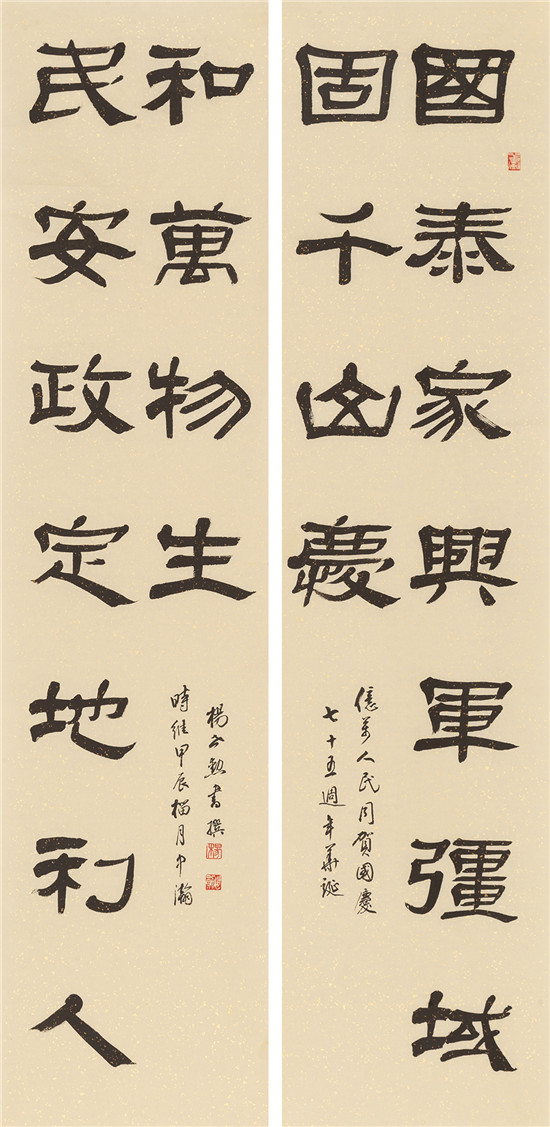 國泰家興軍彊域
固千山慶
億萬人民同賀國慶
七十五週年華誕
民安政定地利人
和萬物生
時維甲辰榴月中瀚
楊勲書撰